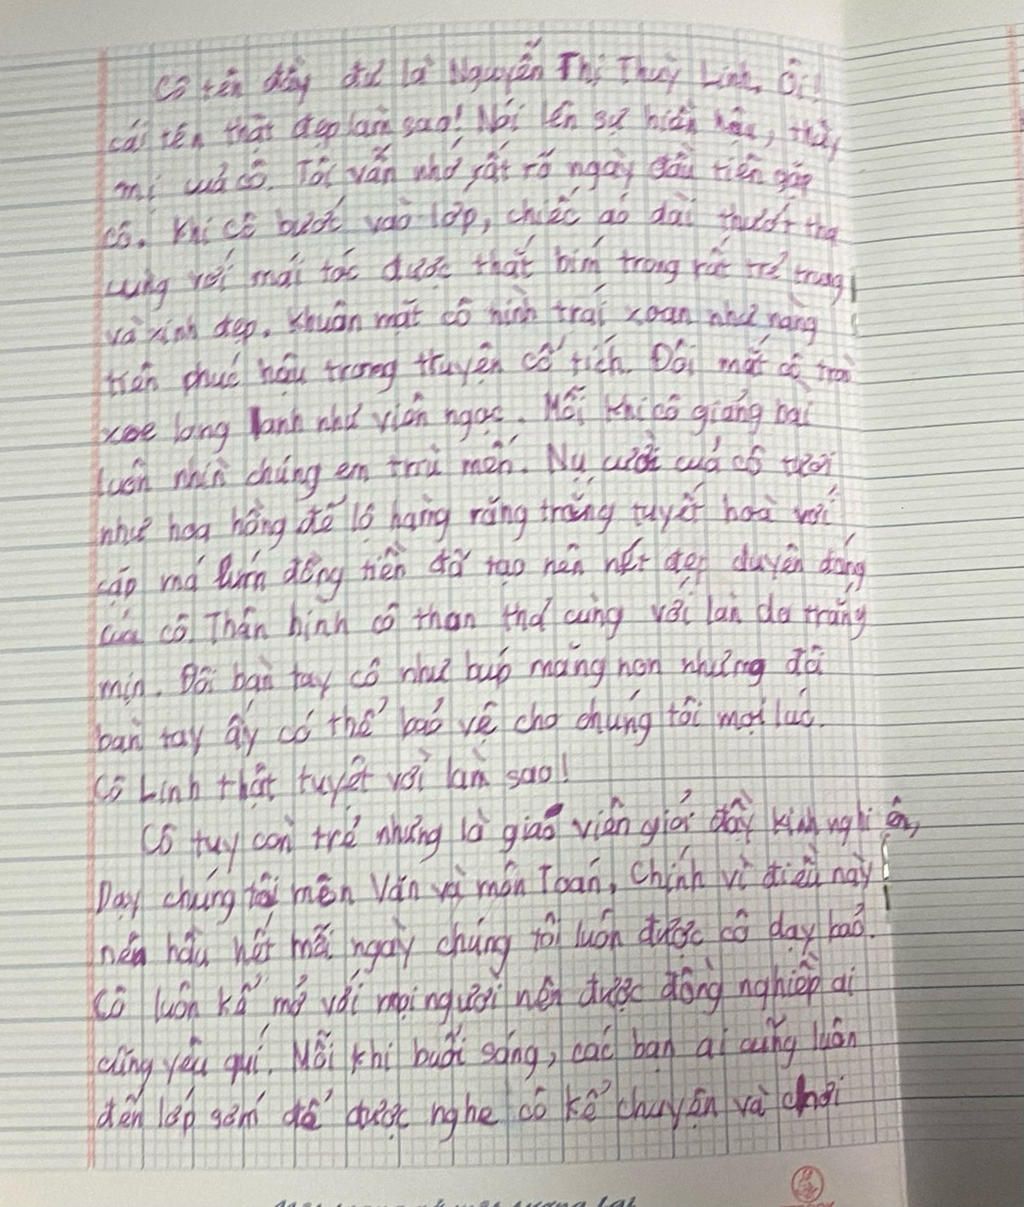 Cô tên đầy đủ là Nguyễn Thị Thuỳ Linh. Ôi!
cái tên thật đẹp làm sao! Nói lên sự hiền hậu, thùy
mị của cô. Tôi vẫn nhớ rất rõ ngày đầu tiên gặp
cô. Khi cô bước vào lớp, chiếc áo dài thướt tha
cùng với mái tóc được thắt bím trông rất trẻ trung
và xinh đẹp. Khuân mặt cô hình trái xoan như nàng
tiên phúc hậu trong truyện cổ tích. Đôi mắt cô tròn
xoe long lanh như viên ngọc. Mỗi khi cô giảng bài
luôn nhìn chúng em trìu mến. Nụ cười của cô tươi
như hoa hồng để lộ hàng răng trắng tuyết hoà với
cặp má lúm đồng tiền đã tạo nên nét đẹp duyên dáng
của cô. Thân hình cô than thả cùng với làn da trắng
mịn. Đôi bàn tay cô như búp măng non nhưng đôi
bàn tay ấy có thể bảo vệ cho chúng tôi mọi lúc.
Cô Linh thật tuyệt vời làm sao!
Cô tuy còn trẻ nhưng là giáo viên giỏi đầy kinh nghiện,
Dạy chúng tôi môn Văn và môn Toán, Chính vì điều này
nên hầu hết mỗi ngày chúng tôi luôn được cô dạy bảo.
Cô luôn kở mở với mọi người nên được đồng nghiệp ai
cũng yêu quí. Mỗi khi buổi sáng, các bạn ai cũng luôn
đến lớp sớm để được nghe cô kể chuyện và chơi